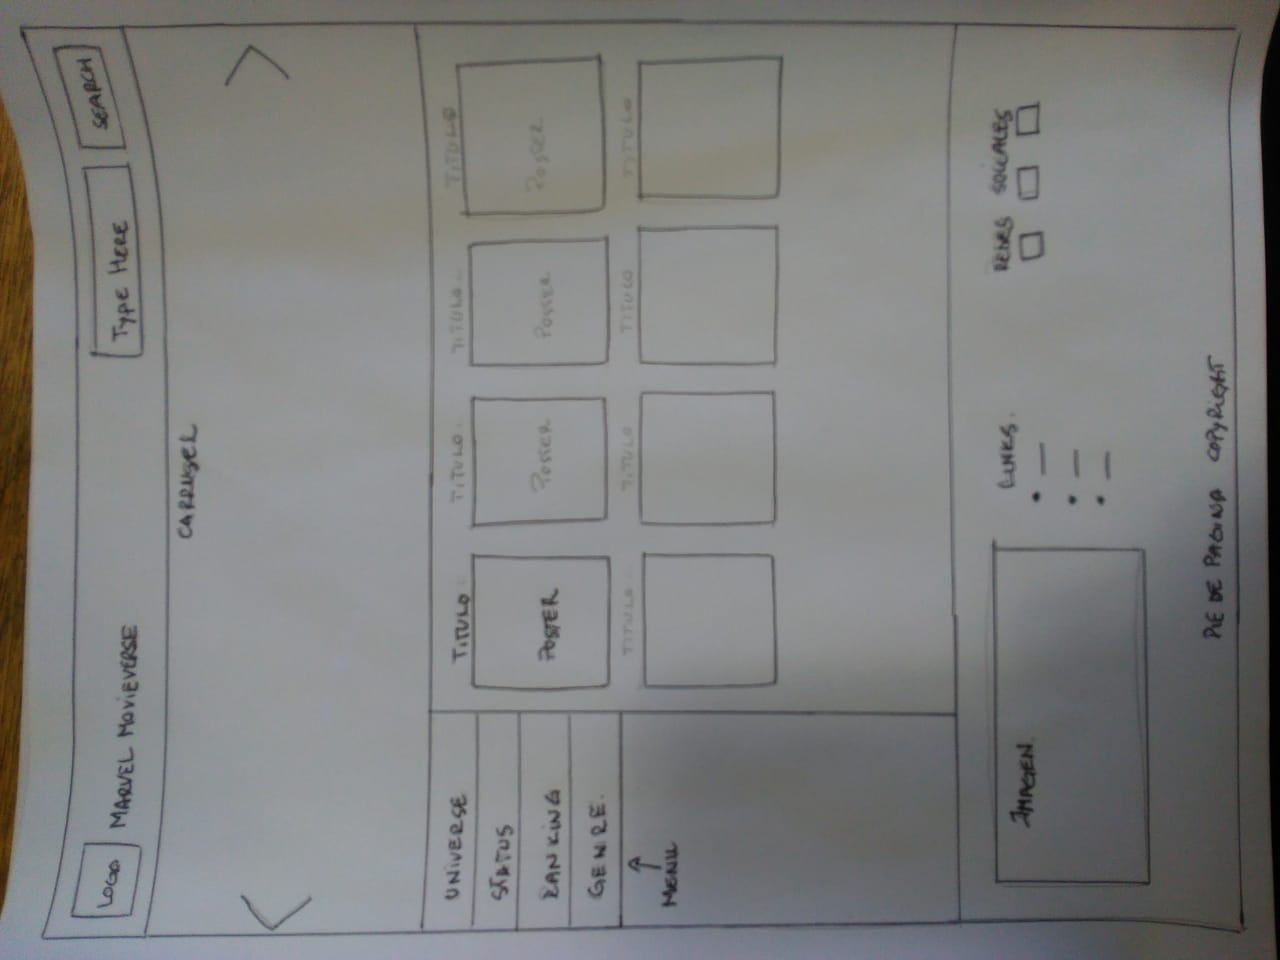 LOGO
MARVEL MOVIEVERSE
TYPE HERE
SEARCH
CARRUSEL
UNIVERSE
STATUS
RANKING
GENRE.
MENU
TITULO TITULO TITULO TITULO
POSTER POSTER POSTER POSTER
TITULO TITULO TITULO TITULO
IMAGEN.
LINKS.
REDES SOCIALES
PIE DE PAGINA COPYRIGHT